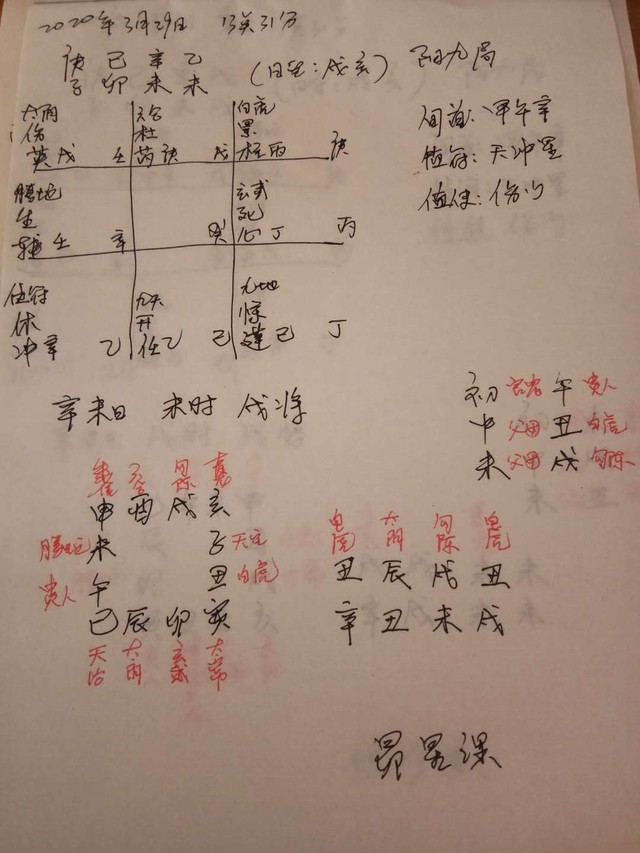 2020年3月29日 13点31分
庚 己 辛 乙 (日空:戌亥) 阳九局
子 卯 未 未
旬首:甲午辛
值符:天冲星
值使:伤门
太阴 六合 白虎
伤 杜 景
英 戊 壬 芮 庚 戊 柱 丙 庚
腾蛇 玄武
生 死
辅 壬 辛 癸 心 丁 丙
值符 九天 九地
休 开 惊
冲 辛 乙 任 乙 己 蓬 己 丁
辛未日 未时 戌将
初 官鬼 午 贵人
中 父母 丑 白虎
末 父母 戌 勾陈
申 酉 戌 亥
腾蛇 未 子 天空
贵人 午 丑 白虎
巳 辰 卯 寅
天后 太阴 玄武 太常
白虎 太阴 勾陈 白虎
丑 辰 戌 丑
辛 丑 未 戌
昴星课